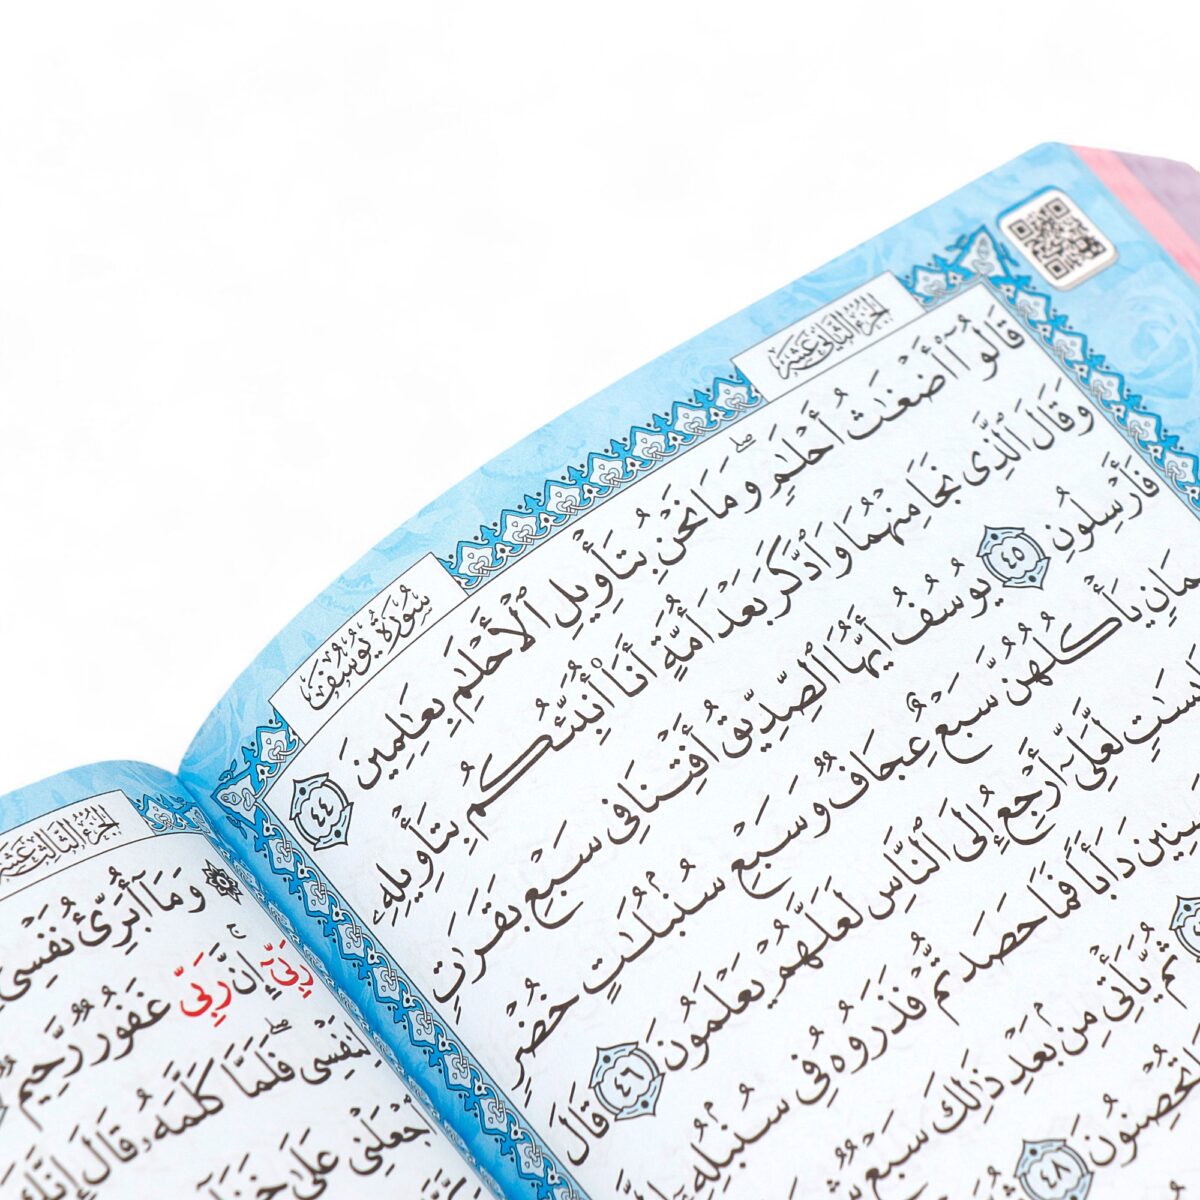 الجزء الثاني عشر
سورة يوسف
قَالُوٓا۟ أَضْغَٰثُ أَحْلَٰمٍ ۖ وَمَا نَحْنُ بِتَأْوِيلِ ٱلْأَحْلَٰمِ بِعَٰلِمِينَ ٤٤
وَقَالَ ٱلَّذِى نَجَا مِنْهُمَا وَٱدَّكَرَ بَعْدَ أُمَّةٍ أَنَا۠ أُنَبِّئُكُم بِتَأْوِيلِهِۦ
فَأَرْسِلُونِ ٤٥ يُوسُفُ أَيُّهَا ٱلصِّدِّيقُ أَفْتِنَا فِى سَبْعِ بَقَرَٰتٍ
مَانٍ يَأْكُلُهُنَّ سَبْعٌ عِجَافٌ وَسَبْعِ سُنۢبُلَٰتٍ خُضْرٍ
بِسَٰتٍ لَّعَلِّىٓ أَرْجِعُ إِلَى ٱلنَّاسِ لَعَلَّهُمْ يَعْلَمُونَ ٤٦ قَالَ
سِنِينَ دَأَبًا فَمَا حَصَدتُّمْ فَذَرُوهُ فِى سُنۢبُلِهِۦٓ إِلَّا
ثُمَّ يَأْتِى مِنۢ بَعْدِ ذَٰلِكَ سَبْعٌ
تُحْصِنُونَ ٤٨
الجزء الثالث عشر
وَمَآ أُبَرِّئُ نَفْسِىٓ ۚ
رَبِّىٓ ۚ إِنَّ رَبِّى غَفُورٌ رَّحِيمٌ
لِنَفْسِى ۖ فَلَمَّا كَلَّمَهُۥ قَالَ إِنَّكَ
ٱجْعَلْنِى عَلَىٰ خَزَآئِنِ